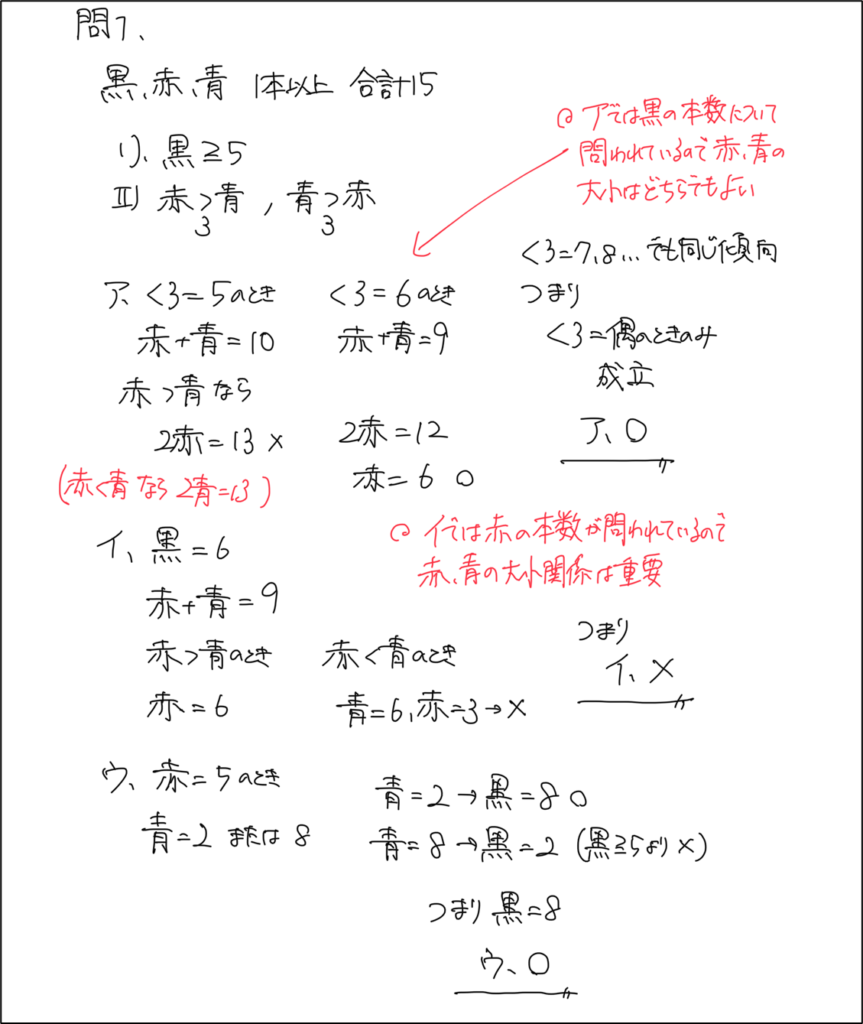 問7、
黒、赤、青 1本以上 合計15
I)、黒≧5
II) 赤>青 , 青>赤
3 3
アでは黒の本数について
問われているので赤、青の
大小はどちらでもよい
ア、くろ=5のとき
赤+青=10
赤>青なら
2赤=13 ×
(赤<青なら 2青=13)
くろ=6のとき
赤+青=9
2赤=12
赤=6 ○
くろ=7、8...でも同じ傾向
つまり
くろ=偶のときのみ
成立
ア、○
イ、黒=6
赤+青=9
赤>青のとき
赤=6
イでは赤の本数が問われているので
赤、青の大小関係は重要
赤<青のとき
青=6、赤=3→×
つまり
イ、×
ウ、赤=5のとき
青=2 または 8
青=2→黒=8 ○
青=8→黒=2 (黒≧5より×)
つまり 黒=8
ウ、○